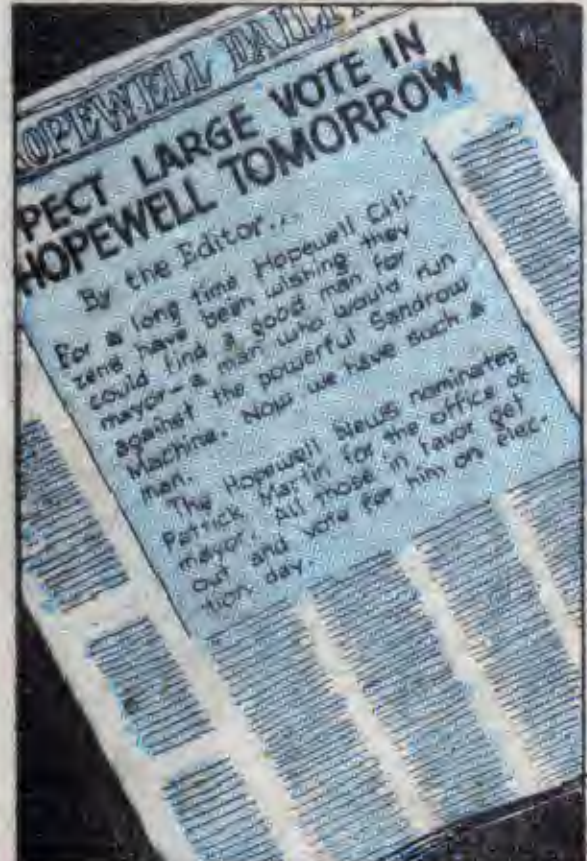 OPEWELL DAILY
PECT LARGE VOTE IN
HOPEWELL TOMORROW
By the Editor...
For a long time Hopewell Citi-
zens have been wishing they
could find a good man for
mayor - a man who would run
against the powerful Sandrow
Machine. Now we have such a
man.
The Hopewell News nominates
Patrick Martin for the office of
mayor. All those in favor get
out and vote for him on elec-
tion day.